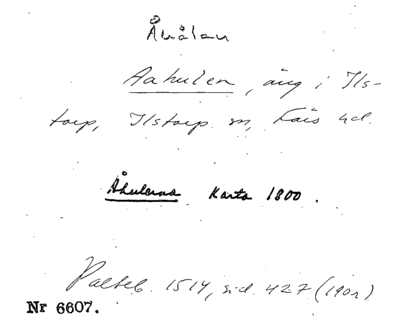 Åhålan
Aahulen, äng i Ils-
torp, Ilstorp sn, Färs hd.
Åhulorna Karta 1800.
Palteb. 1514, sid. 427 (190r)
Nr 6607.